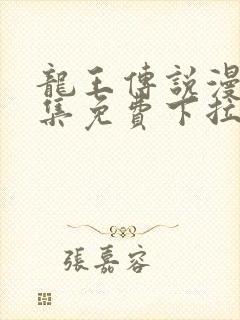 龍王傳說漫
集免費下拉
張嘉容